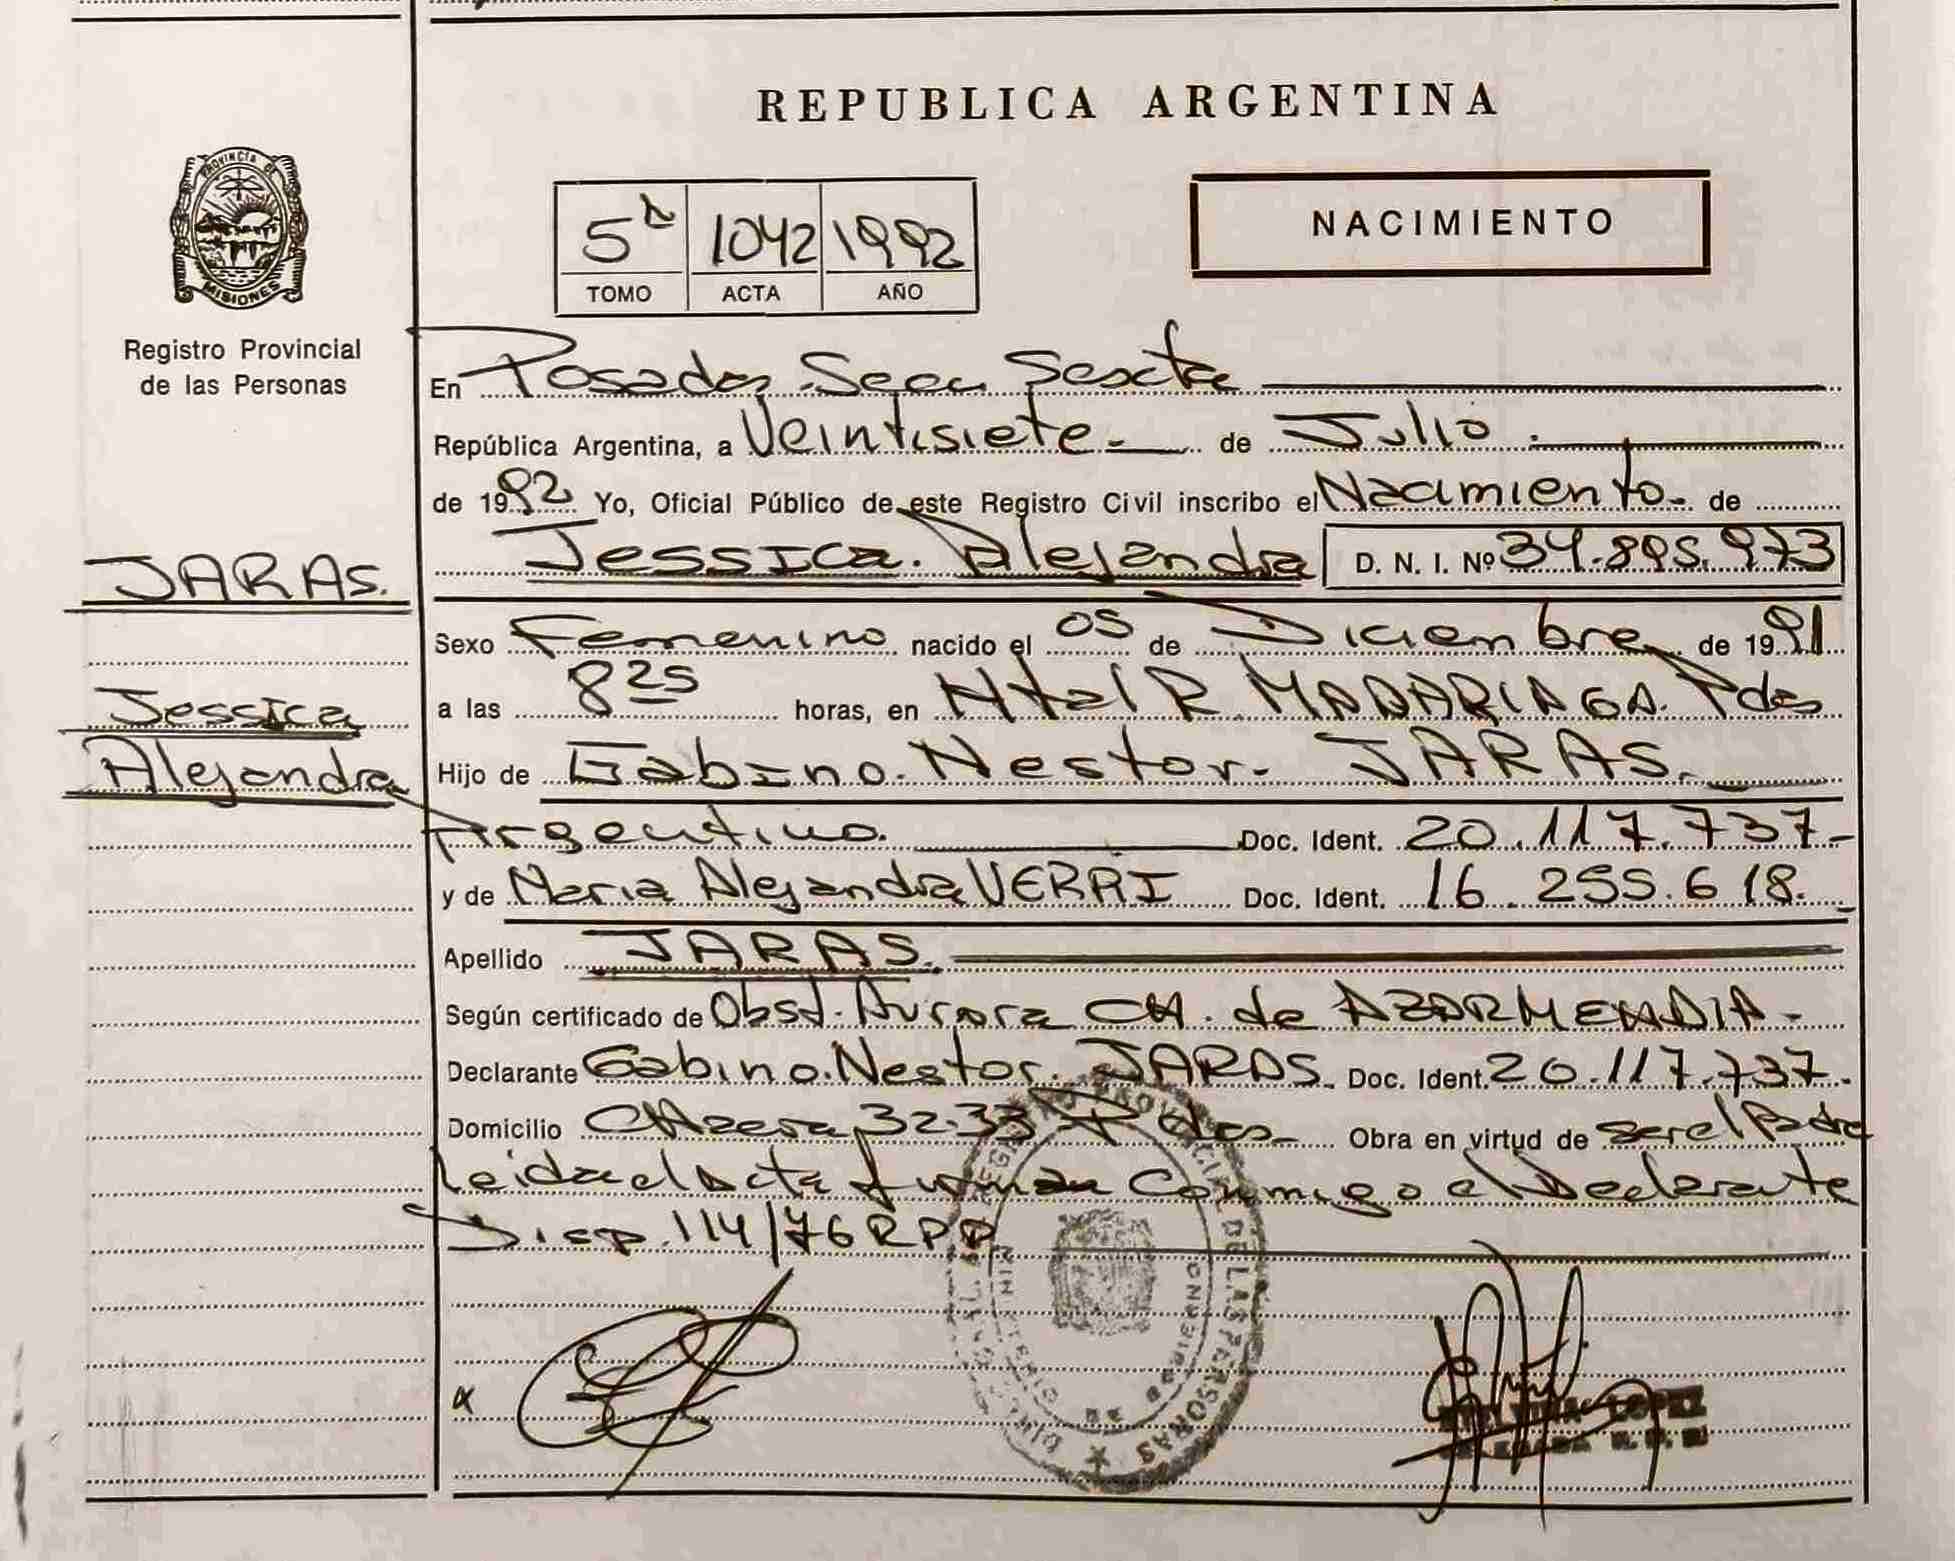 REPUBLICA ARGENTINA
PROVINCIA DE
MISIONES
Registro Provincial
de las Personas
5
1042
1992
TOMO
ACTA
AÑO
NACIMIENTO
En Posadas Secc Sexta
República Argentina, a Veintisiete de Julio
de 1992 Yo, Oficial Público de este Registro Civil inscribo el Nacimiento de
Jessica Alejandra D. N. I. Nº 34.895.973
JARAS.
Jessica
Alejandra
Sexo Femenino nacido el 05 de Diciembre de 1991
a las 8 25 horas, en Htal R. MADARIAGA. Pdas
Hijo de Gabino Nestor JARAS.
Argentino. Doc. Ident. 20.117.737
y de Maria Alejandra VERRI Doc. Ident. 16.255.618.
Apellido JARAS.
Según certificado de Obst. Aurora CH. de AZARMENDIA
Declarante Gabino Nestor JARAS. Doc. Ident. 20.117.737.
Domicilio CHAzara 3233 Pdas Obra en virtud de ser el Padre
Leida el Acta firman Conmigo el Declarante
Disp. 114/76 RPP
LOPEZ